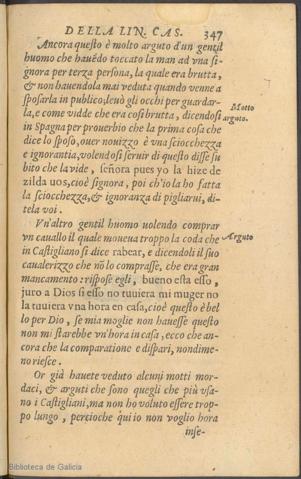 DELLA LIN. CAS. 347
Ancora questo è molto arguto d'un gentil
huomo che hauēdo toccato la man ad vna si-
gnora per terza persona, la quale era brutta,
& non hauendola mai veduta quando venne a
sposarla in publico, leuò gli occhi per guardar-
la, e come vidde che era cosi brutta, dicendosi
Motto
arguto.
in Spagna per prouerbio che la prima cosa che
dice lo sposo, ouer nouizzo è vna sciocchezza
e ignorantia, volendosi seruir di questo disse su
bito che la vide, señora pues yo la hize de
zilda uos, cioè signora, poi ch'io la ho fatta
la sciocchezza, & ignoranza di pigliarui, di-
tela voi.
Vn'altro gentil huomo uolendo comprar
vn cauallo il quale moueua troppo la coda che
Arguto
in Castigliano si dice rabear, e dicendoli il suo
caualerizzo che nō lo comprasse, che era gran
mancamento: rispose egli, bueno esta esso,
juro a Dios si esso no tuuiera mi muger no
la tuuiera vna hora en casa, cioè questo è bel
lo per Dio, se mia moglie non hauesse questo
non mi starebbe vn'hora in casa, ecco che an-
cora che la comparatione e dispari, nondime-
no riesce.
Or già hauete veduto alcuni motti mor-
daci, & arguti che sono quegli che più vsa-
no i Castigliani, ma non ho voluto essere trop-
po lungo, percioche qui io non voglio hora
inse-
Biblioteca de Galicia